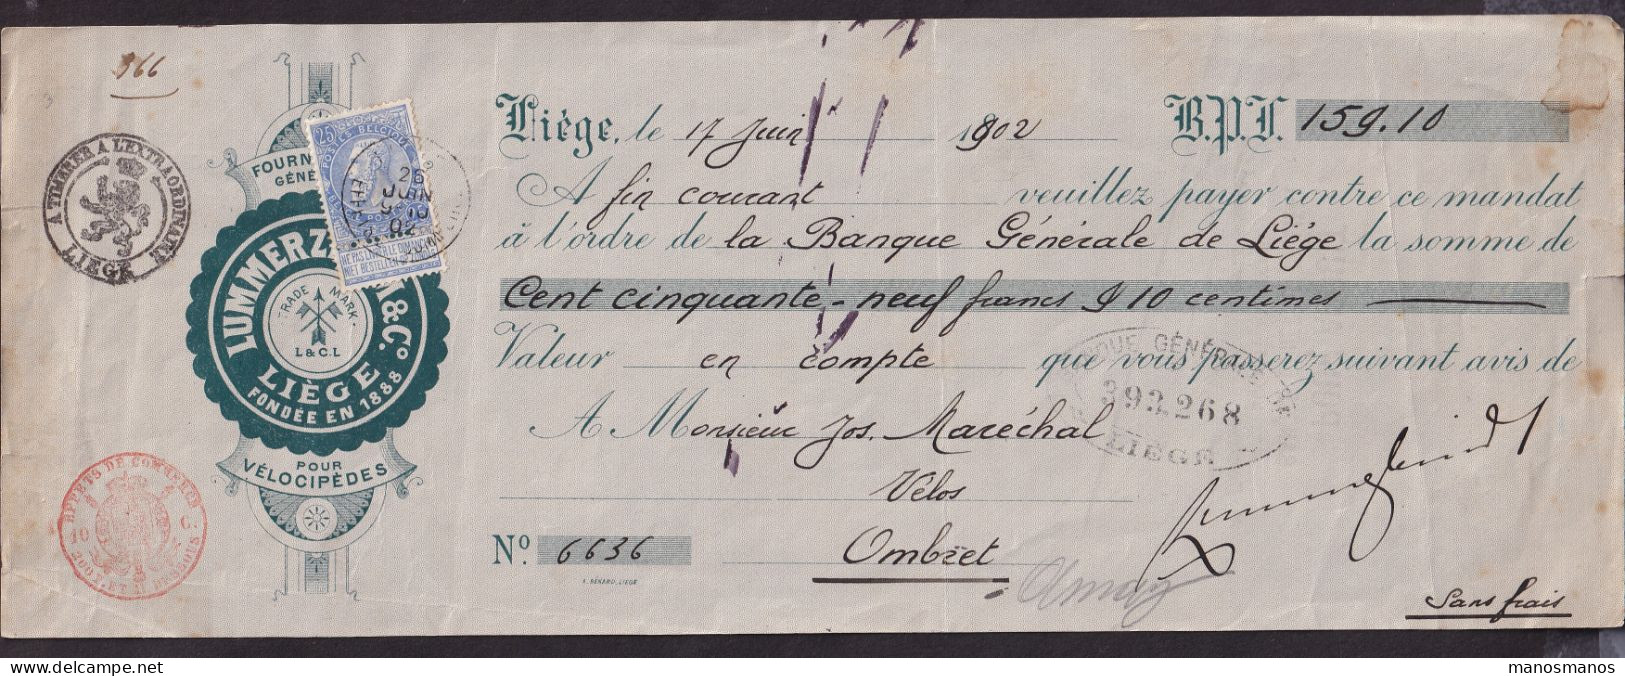 366
A TIMBRER A L'EXTRAORDINAIRE
LIEGE
FOURN
GÉNÉ
LUMMERZ M & Cº
TRADE MARK
L & C. L
LIÈGE
FONDÉE EN 1888
POUR
VÉLOCIPÈDES
25
POSTES BELGIQUE
NE PAS LIVRER LE DIMANCHE
NIET BESTELLEN OP ZONDAG
26
JUIN
02
EFFETS DE COMMERCE
10 C.
200 F. ET AU DESSOUS
Liège, le 17 Juin 1902 B.P.F. 159.10
A fin courant veuillez payer contre ce mandat
à l'ordre de la Banque Générale de Liège la somme de
Cent cinquante-neuf francs & 10 centimes
Valeur en compte que vous passerez suivant avis de
BANQUE GÉNÉRALE DE
393.268
LIÉGE
A Monsieur Jos. Maréchal
Vélos
Nº 6636 Ombret
Amay
Sans frais
A. BÉNARD, LIÈGE
manosmanos